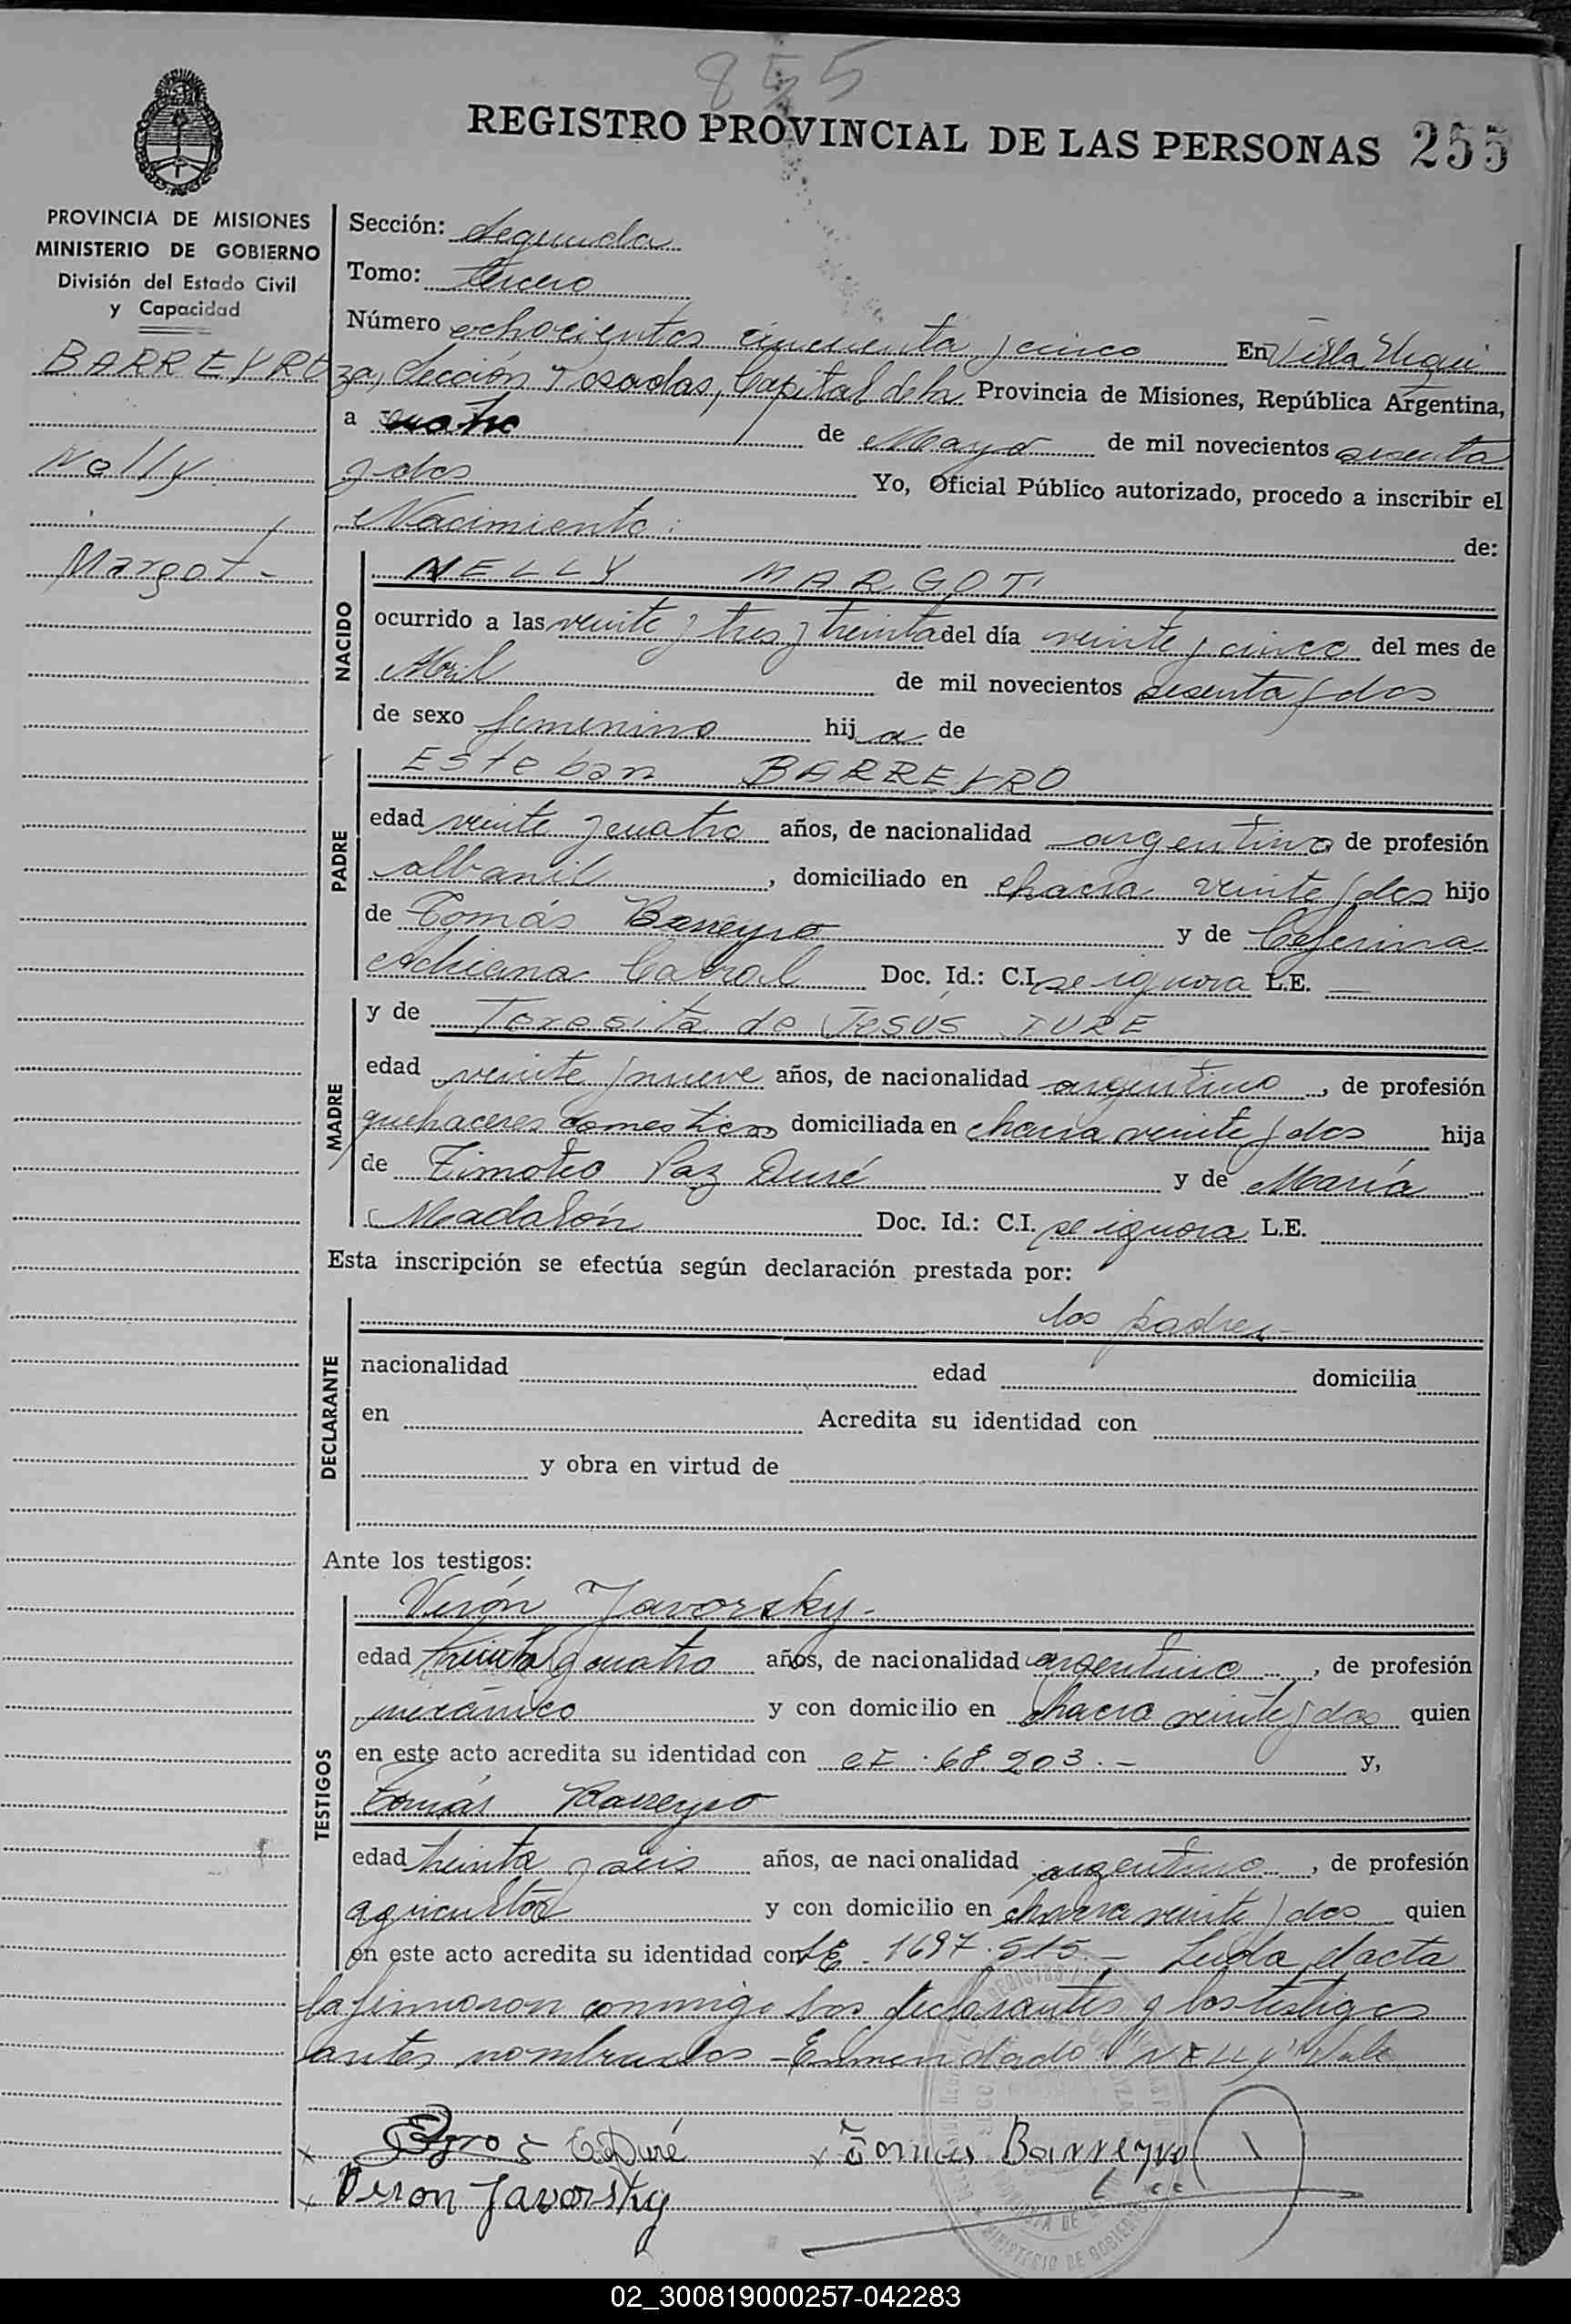 855
REGISTRO PROVINCIAL DE LAS PERSONAS 255
PROVINCIA DE MISIONES
MINISTERIO DE GOBIERNO
División del Estado Civil
y Capacidad
BARREYRO
Nelly
Margot-
Sección: Segunda
Tomo: tercero
Número ochocientos cincuenta y cinco En Villa Urqui
za, Sección Posadas, Capital de la Provincia de Misiones, República Argentina,
a cuatro de Mayo de mil novecientos sesenta
y dos Yo, Oficial Público autorizado, procedo a inscribir el
Nacimiento: de:
NACIDO
NELLY MARGOT
ocurrido a las veinte y tres y treinta del día veinte y cinco del mes de
Abril de mil novecientos sesenta y dos
de sexo femenino hija de
PADRE
Esteban BARREYRO
edad veinte y cuatro años, de nacionalidad argentino de profesión
albanil, domiciliado en chacra veinte y dos hijo
de Tomás Barreyro y de Ceferina
Adriana Cabral Doc. Id.: C.I. se ignora L.E. —
MADRE
y de Teresita de Jesús DURE
edad veinte y nueve años, de nacionalidad argentino, de profesión
quehaceres domesticos domiciliada en chacra veinte y dos hija
de Timoteo Paz Duré y de María
Madalón Doc. Id.: C.I. se ignora L.E.
Esta inscripción se efectúa según declaración prestada por:
DECLARANTE
los padres-
nacionalidad edad domicilia
en Acredita su identidad con
y obra en virtud de
Ante los testigos:
TESTIGOS
Verón Javorsky.-
edad treinta y cuatro años, de nacionalidad argentino, de profesión
mecánico y con domicilio en chacra veinte y dos quien
en este acto acredita su identidad con 68.203.- y,
Tomás Barreyro
edad treinta y seis años, de nacionalidad argentino, de profesión
agricultor y con domicilio en chacra veinte y dos quien
en este acto acredita su identidad con LE. 1697.515.- Leida el acta
la firmaron conmigo los declarantes y los testigos
antes nombrados - Enmendado "NELLY" Vale
Duré x Tomas Barreyro
x Veron Javorsky
MINISTERIO DE GOBIERNO
02_300819000257-042283